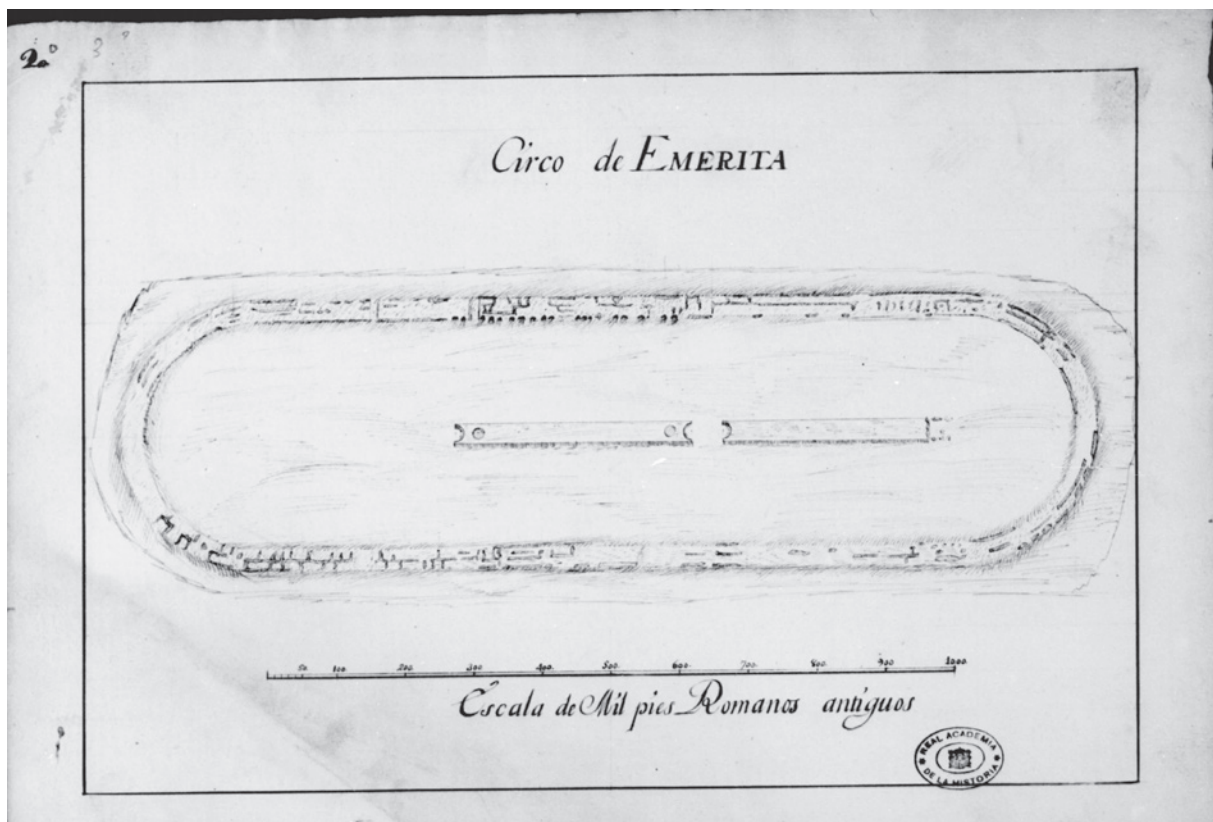 2º 3º
Circo de EMERITA
50. 100. 200. 300. 400. 500. 600. 700. 800. 900. 1000.
Escala de Mil pies Romanos antiguos
REAL ACADEMIA
DE LA HISTORIA